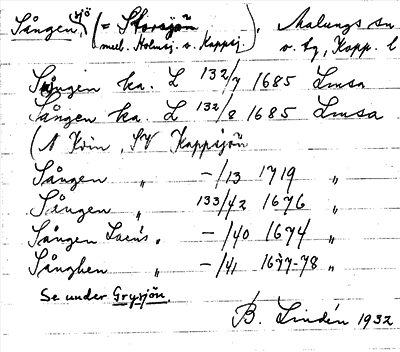 Sången, sjö (= Storsjön), Malungs sn
mell. Holmsj. o. Kappsj. v. tg, Kopp. l
Sången ka. L 132/7 1685 Lmsa
Sången ka. L 132/8 1685 Lmsa
(N Kvin, SV Kappsjön
Sången „ -/13 1719 „
Sången „ 133/42 1676 „
Sången Laens „ -/40 1674 „
Sånghen „ -/41 1677-78 „
Se under Grysjön.
B. Lindén 1932